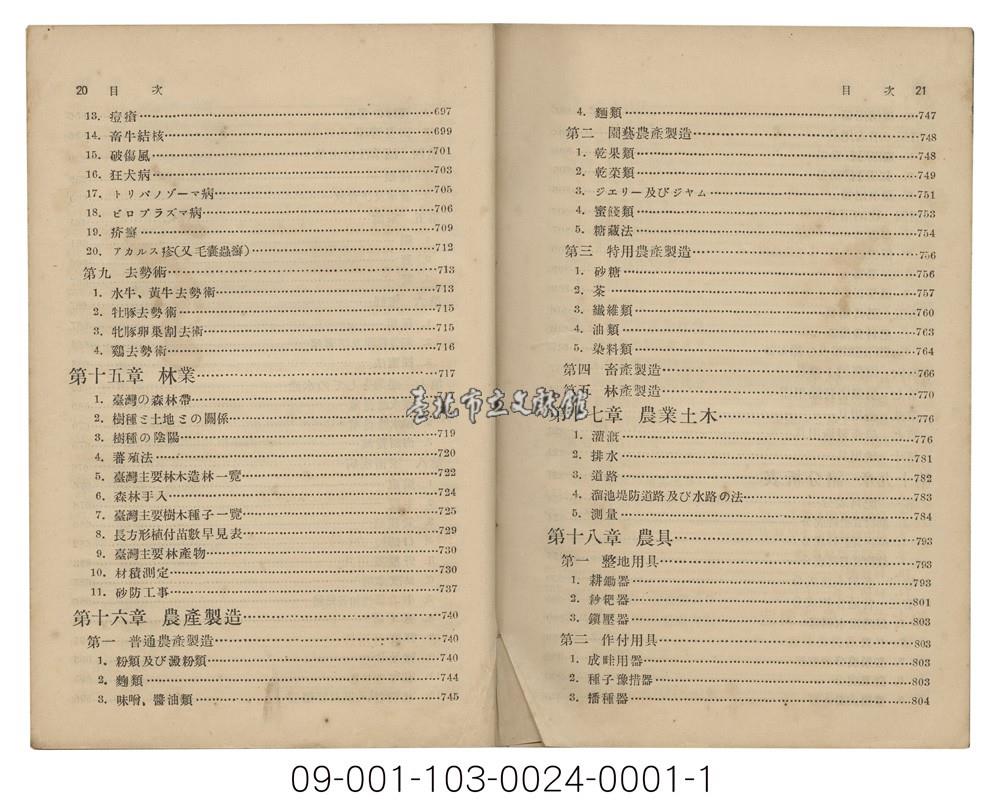 20 目 次
13. 痘瘡 697
14. 畜牛結核 699
15. 破傷風 701
16. 狂犬病 703
17. トリパノゾーマ病 705
18. ピロプラズマ病 706
19. 疥癬 709
20. アカルス疹(又毛囊蟲癬) 712
第九 去勢術 713
1. 水牛、黃牛去勢術 713
2. 牡豚去勢術 715
3. 牝豚卵巢割去術 715
4. 鷄去勢術 716
第十五章 林業 717
1. 臺灣の森林帶
2. 樹種ミ土地ミの關係
3. 樹種の陰陽 719
4. 蕃殖法 720
5. 臺灣主要林木造林一覽 722
6. 森林手入 724
7. 臺灣主要樹木種子一覽 725
8. 長方形植付苗數早見表 729
9. 臺灣主要林產物 730
10. 材積測定 730
11. 砂防工事 737
第十六章 農產製造 740
第一 普通農產製造 740
1. 粉類及び澱粉類 740
2. 麴類 744
3. 味噌、醬油類 745
目 次 21
4. 麵類 747
第二 園藝農產製造 748
1. 乾果類 748
2. 乾菜類 749
3. ジエリー及びジャム 751
4. 蜜餞類 753
5. 糖藏法 754
第三 特用農產製造 756
1. 砂糖 756
2. 茶 757
3. 纖維類 760
4. 油類 763
5. 染料類 764
第四 畜產製造 766
第五 林產製造 770
臺北市立文獻館
第十七章 農業土木 776
1. 灌漑 776
2. 排水 781
3. 道路 782
4. 溜池堤防道路及び水路の法 783
5. 測量 784
第十八章 農具 793
第一 整地用具 793
1. 耕鋤器 793
2. 耖耙器 801
3. 鎭壓器 803
第二 作付用具 803
1. 成畦用器 803
2. 種子豫措器 803
3. 播種器 804
09-001-103-0024-0001-1